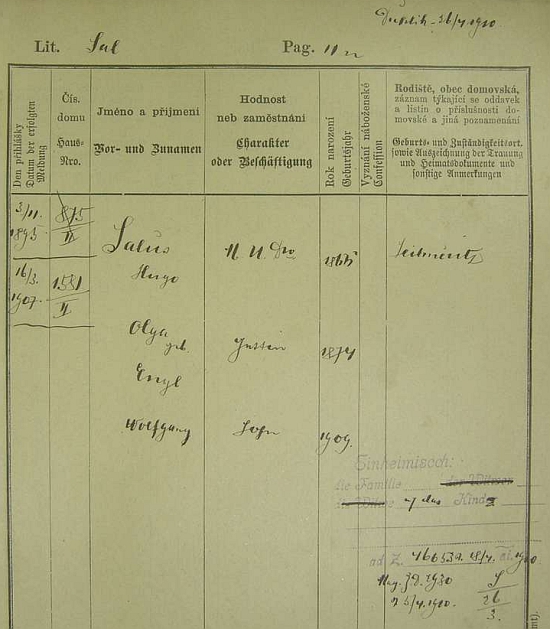 Duplik. 26/4 1910
Lit. Sal Pag. 11
Den přihlášky
Datum der erfolgten Meldung
Čís. domu
Haus-Nro.
Jméno a příjmení
Vor- und Zunamen
Hodnost
neb zaměstnání
Charakter
oder Beschäftigung
Rok narození
Geburtsjahr
Vyznání náboženské
Confession
Rodiště, obec domovská,
záznam týkající se oddavek
a listin o příslušnosti do-
movské a jiná poznamenání
Geburts- und Zuständigkeitsort,
sowie Aufzeichnung der Trauung
und Heimatsdokumente und
sonstige Anmerkungen
3/11. 1893 875/II
Salus
Hugo
M. U. Dr
1866
Leitmeritz
16/3. 1907 1581/II
Olga
geb.
Engl
Gattin
1874
Wolfgang Sohn 1909.
Einheimisch:
die Familie der Witwer
die Witwe das Kind
ad Z.